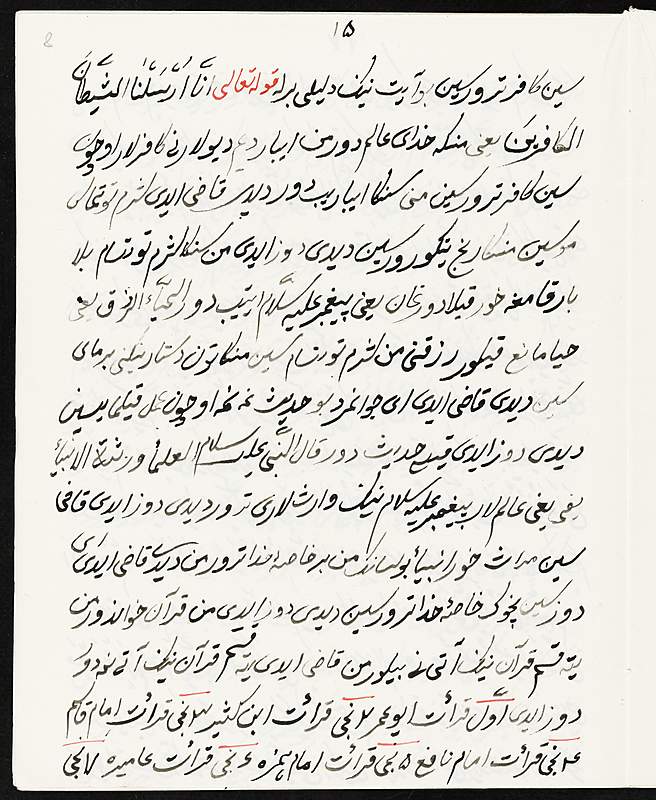 ۱۵
سین کافر ترورسین بو آیت نیک دلیلی برله قوله تعالی انّا ارسلنا الشیطان
الکافرین یعنی منکه خدای عالم دورمن ایباردیم دیولارنی کافرلار اوچون
سین کافر ترورسین منی سنکا ایباریب دور دیدی قاضی ایدی لثرم تو تمای
موسین منکا رنج یتکورورسین دیدی دوز ایدی من سنکا لثرم توتسام بلا
بار قامغه خور قیلادورغان یعنی پیغمبر علیه سلّام ایتیب دور الحیآء الرزق یعنی
حیا مانع قیلور رزقنی من لثرم توتسام سین منکا تون دستارینکنی برمای
سین دیدی قاضی ایدی ای جوانمرد بو حدیث نه نمه اوچون عمل قیلمایسین
دیدی دوز ایدی قیسی حدیث دور قال النّبی علیه سلام العلمأ ورثة الانبیأ
یعنی عالملار پیغمبر علیه سلام نیک وارثلاری ترور دیدی دوز ایدی قاضی
سین میراث خور انبیأ بولسانک من بر خاصهٔ خدا ترورمن دیدی قاضی ایدی ای
دوز سین نچوک خاصهٔ خدا ترورسین دیدی دوز ایدی من قرآن خواندورمن
یته قسم قرآن نیک آتی نی بیلورمن قاضی ایدی یته قسم قرآن نیک آتی نه دور
دوز ایدی اول قرأت ابو عمر ۲ نجی قرأت ابن کثیر ۳ نجی قرأت امام قاسم
۴ نجی قرأت امام نافع ۵ نجی قرأت امام همزه ۶ نجی قرأت عامیره ۷ نجی